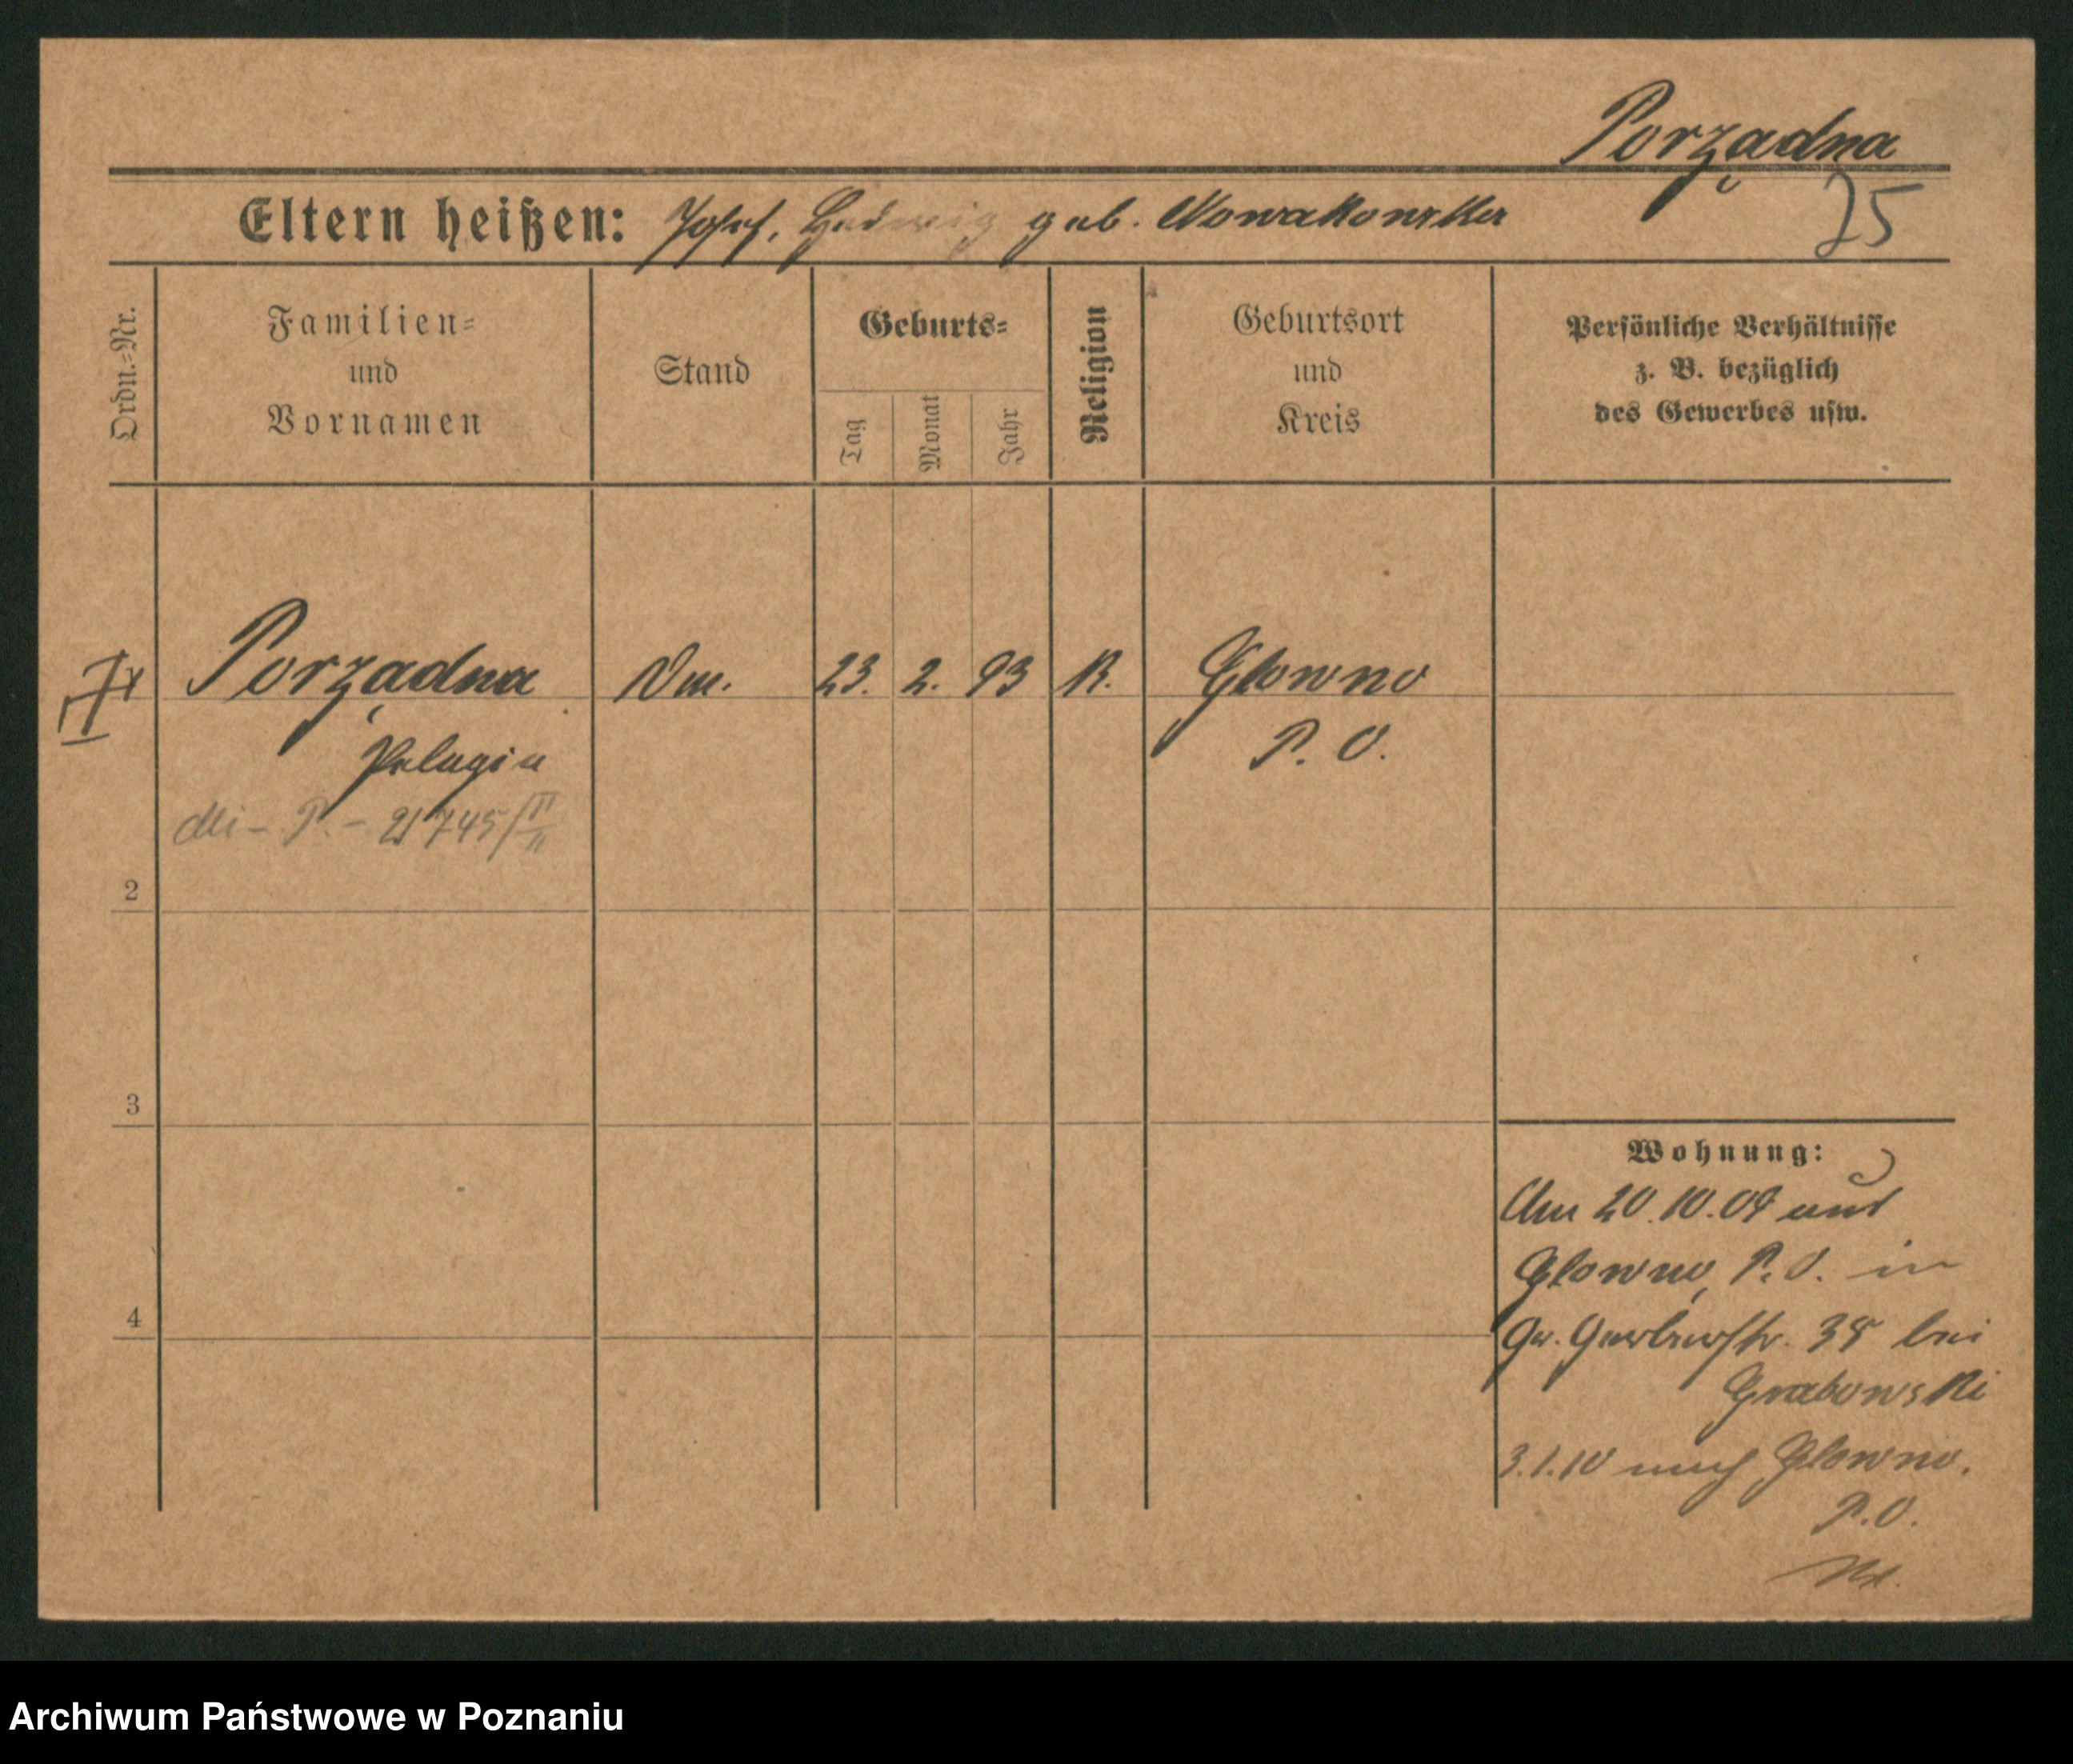 Porządna
75
Eltern heißen: Josef, Hedwig geb. Nowakowska
Ordn.-Nr.
Familien-
und
Vornamen
Stand
Geburts-
Tag
Monat
Jahr
Religion
Geburtsort
und
Kreis
Persönliche Verhältnisse
z. B. bezüglich
des Gewerbes usw.
Porządna
23. 2. 93
K.
Glowno
Pelagia
P. O.
2
3
4
Wohnung:
Am 20.10.09 aus
Glowno, P.O. in
Gr. Gerberstr. 38 bei
Grabowski
3.1.10 nach Glowno.
P.O.
Archiwum Państwowe w Poznaniu